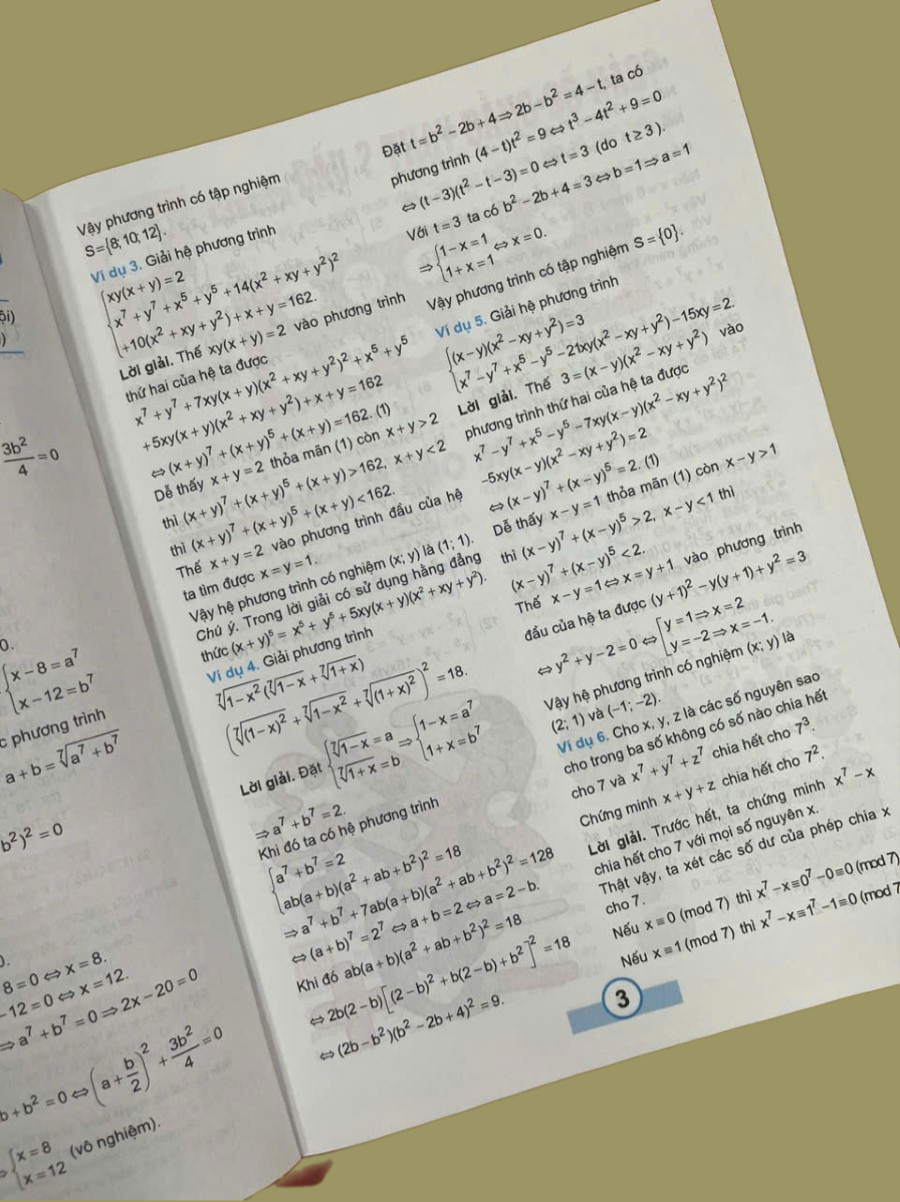 ội)
)
3b²/4 = 0
0.
{x − 8 = a⁷
{x − 12 = b⁷
c phương trình
a + b = ⁷√(a⁷ + b⁷)
b²)² = 0
0.
8 = 0 ⇔ x = 8.
−12 = 0 ⇔ x = 12.
⇒ a⁷ + b⁷ = 0 ⇒ 2x − 20 = 0
b + b² = 0 ⇔ (a + b/2)² + 3b²/4 = 0
⇒ {x = 8
{x = 12 (vô nghiệm).
Vậy phương trình có tập nghiệm
S = {8; 10; 12}.
Ví dụ 3. Giải hệ phương trình
{xy(x + y) = 2
{x⁷ + y⁷ + x⁵ + y⁵ + 14(x² + xy + y²)²
+10(x² + xy + y²) + x + y = 162.
Lời giải. Thế xy(x + y) = 2 vào phương trình
thứ hai của hệ ta được
x⁷ + y⁷ + 7xy(x + y)(x² + xy + y²)² + x⁵ + y⁵
+5xy(x + y)(x² + xy + y²) + x + y = 162
⇔ (x + y)⁷ + (x + y)⁵ + (x + y) = 162. (1)
Dễ thấy x + y = 2 thỏa mãn (1) còn x + y > 2
thì (x + y)⁷ + (x + y)⁵ + (x + y) > 162, x + y < 2
thì (x + y)⁷ + (x + y)⁵ + (x + y) < 162.
Thế x + y = 2 vào phương trình đầu của hệ
ta tìm được x = y = 1.
Vậy hệ phương trình có nghiệm (x; y) là (1; 1).
Chú ý. Trong lời giải có sử dụng hằng đẳng
thức (x + y)⁵ = x⁵ + y⁵ + 5xy(x + y)(x² + xy + y²).
Ví dụ 4. Giải phương trình
⁷√(1 − x²)(⁷√(1 − x) + ⁷√(1 + x))
(⁷√((1 − x)²) + ⁷√(1 − x²) + ⁷√((1 + x)²))² = 18.
Lời giải. Đặt {⁷√(1 − x) = a ⇒ {1 − x = a⁷
{⁷√(1 + x) = b {1 + x = b⁷
⇒ a⁷ + b⁷ = 2.
Khi đó ta có hệ phương trình
{a⁷ + b⁷ = 2
{ab(a + b)(a² + ab + b²)² = 18
⇒ a⁷ + b⁷ + 7ab(a + b)(a² + ab + b²)² = 128
⇔ (a + b)⁷ = 2⁷ ⇔ a + b = 2 ⇔ a = 2 − b.
Khi đó ab(a + b)(a² + ab + b²)² = 18
⇔ 2b(2 − b)[(2 − b)² + b(2 − b) + b²]² = 18
⇔ (2b − b²)(b² − 2b + 4)² = 9.
Đặt t = b² − 2b + 4 ⇒ 2b − b² = 4 − t, ta có
phương trình (4 − t)t² = 9 ⇔ t³ − 4t² + 9 = 0
⇔ (t − 3)(t² − t − 3) = 0 ⇔ t = 3 (do t ≥ 3).
Với t = 3 ta có b² − 2b + 4 = 3 ⇔ b = 1 ⇒ a = 1
⇒ {1 − x = 1
{1 + x = 1 ⇔ x = 0.
Vậy phương trình có tập nghiệm S = {0}.
Ví dụ 5. Giải hệ phương trình
{(x − y)(x² − xy + y²) = 3
{x⁷ − y⁷ + x⁵ − y⁵ − 21xy(x² − xy + y²) − 15xy = 2.
Lời giải. Thế 3 = (x − y)(x² − xy + y²) vào
phương trình thứ hai của hệ ta được
x⁷ − y⁷ + x⁵ − y⁵ − 7xy(x − y)(x² − xy + y²)²
−5xy(x − y)(x² − xy + y²) = 2
⇔ (x − y)⁷ + (x − y)⁵ = 2. (1)
Dễ thấy x − y = 1 thỏa mãn (1) còn x − y > 1
thì (x − y)⁷ + (x − y)⁵ > 2, x − y < 1 thì
(x − y)⁷ + (x − y)⁵ < 2.
Thế x − y = 1 ⇔ x = y + 1 vào phương trình
đầu của hệ ta được (y + 1)² − y(y + 1) + y² = 3
⇔ y² + y − 2 = 0 ⇔ [y = 1 ⇒ x = 2
[y = −2 ⇒ x = −1.
Vậy hệ phương trình có nghiệm (x; y) là
(2; 1) và (−1; −2).
Ví dụ 6. Cho x, y, z là các số nguyên sao
cho trong ba số không có số nào chia hết
cho 7 và x⁷ + y⁷ + z⁷ chia hết cho 7³.
Chứng minh x + y + z chia hết cho 7².
Lời giải. Trước hết, ta chứng minh x⁷ − x
chia hết cho 7 với mọi số nguyên x.
Thật vậy, ta xét các số dư của phép chia x
cho 7.
Nếu x ≡ 0 (mod 7) thì x⁷ − x ≡ 0⁷ − 0 ≡ 0 (mod 7)
Nếu x ≡ 1 (mod 7) thì x⁷ − x ≡ 1⁷ − 1 ≡ 0 (mod 7
3